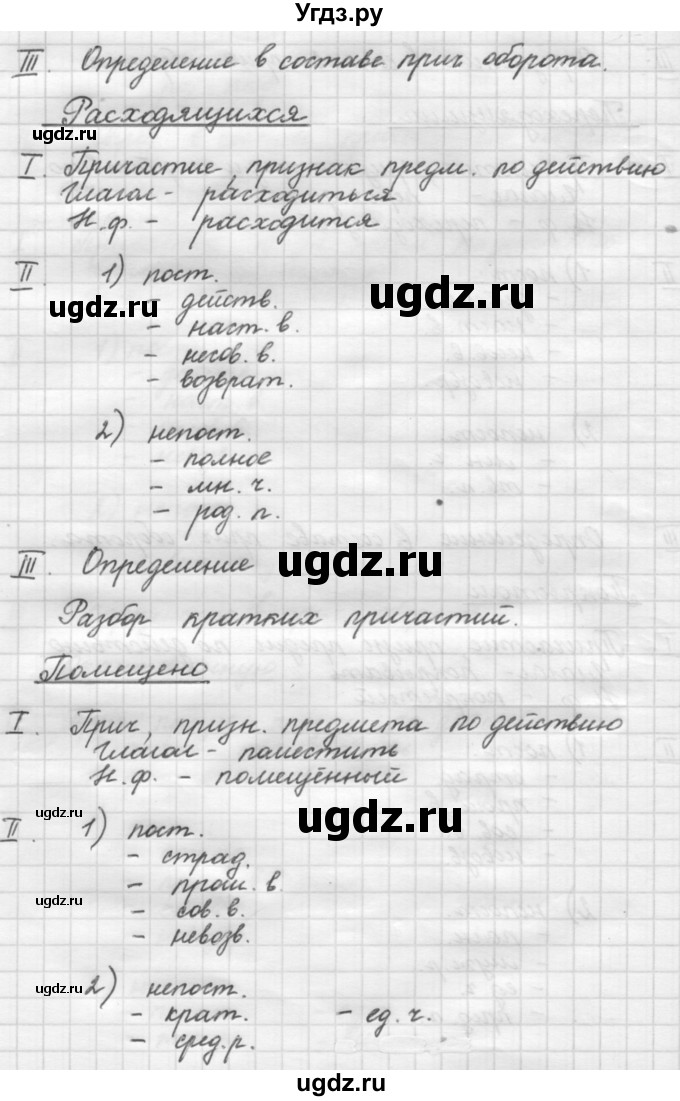 Угдз.ру
III. Определение в составе прич оборота.
Расходящихся
I Причастие, признак предм. по действию
Глагол - расходиться
Н.ф. - расходится
II 1) пост.
- действ.
- наст. в.
- несов. в.
- возврат.
2) непост.
- полное
- мн. ч.
- род. п.
III. Определение
Разбор кратких причастий.
Помещено
I. Прич, призн. предмета по действию
Глагол - поместить
Н.ф. - помещённый
II. 1) пост.
- страд.
- прош. в.
- сов. в.
- невозв.
2) непост.
- крат. - ед. ч.
- сред. р.
ugdz.ru
ugdz.ru
ugdz.ru
ugdz.ru
ugdz.ru
ugdz.ru
ugdz.ru
ugdz.ru
ugdz.ru
ugdz.ru